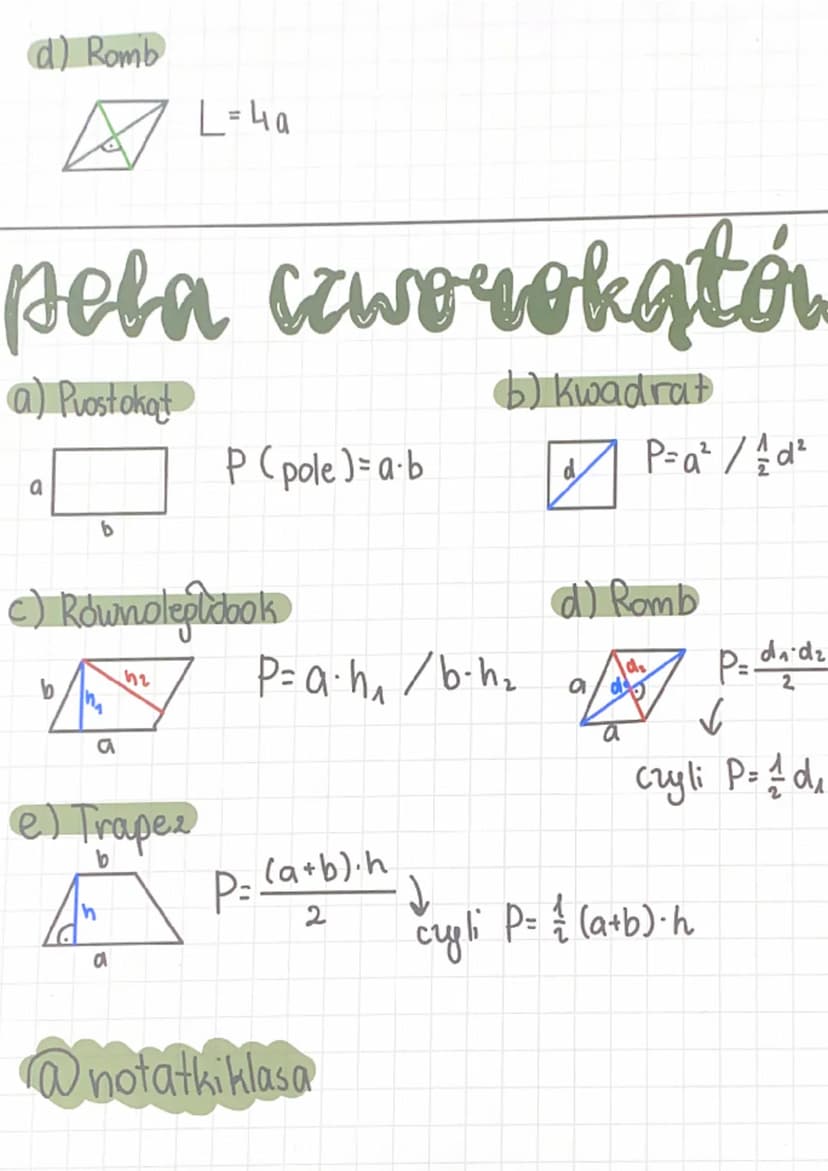 d) Romb
L=4a
pola czworokątów
a) Prostokąt
a
b
P(pole)=a·b
b) Kwadrat
d
P=a² / ½d²
c) Równoległobok
b
h₁
h₂
a
P=a·h₁ /b·h₂
d) Romb
a
d₁
d₂
a
P=d₁·d₂/2
↓
czyli P=½d₁
e) Trapez
b
h
a
P=(a+b)·h/2
↓
czyli P=½(a+b)·h
@notatkiklasa